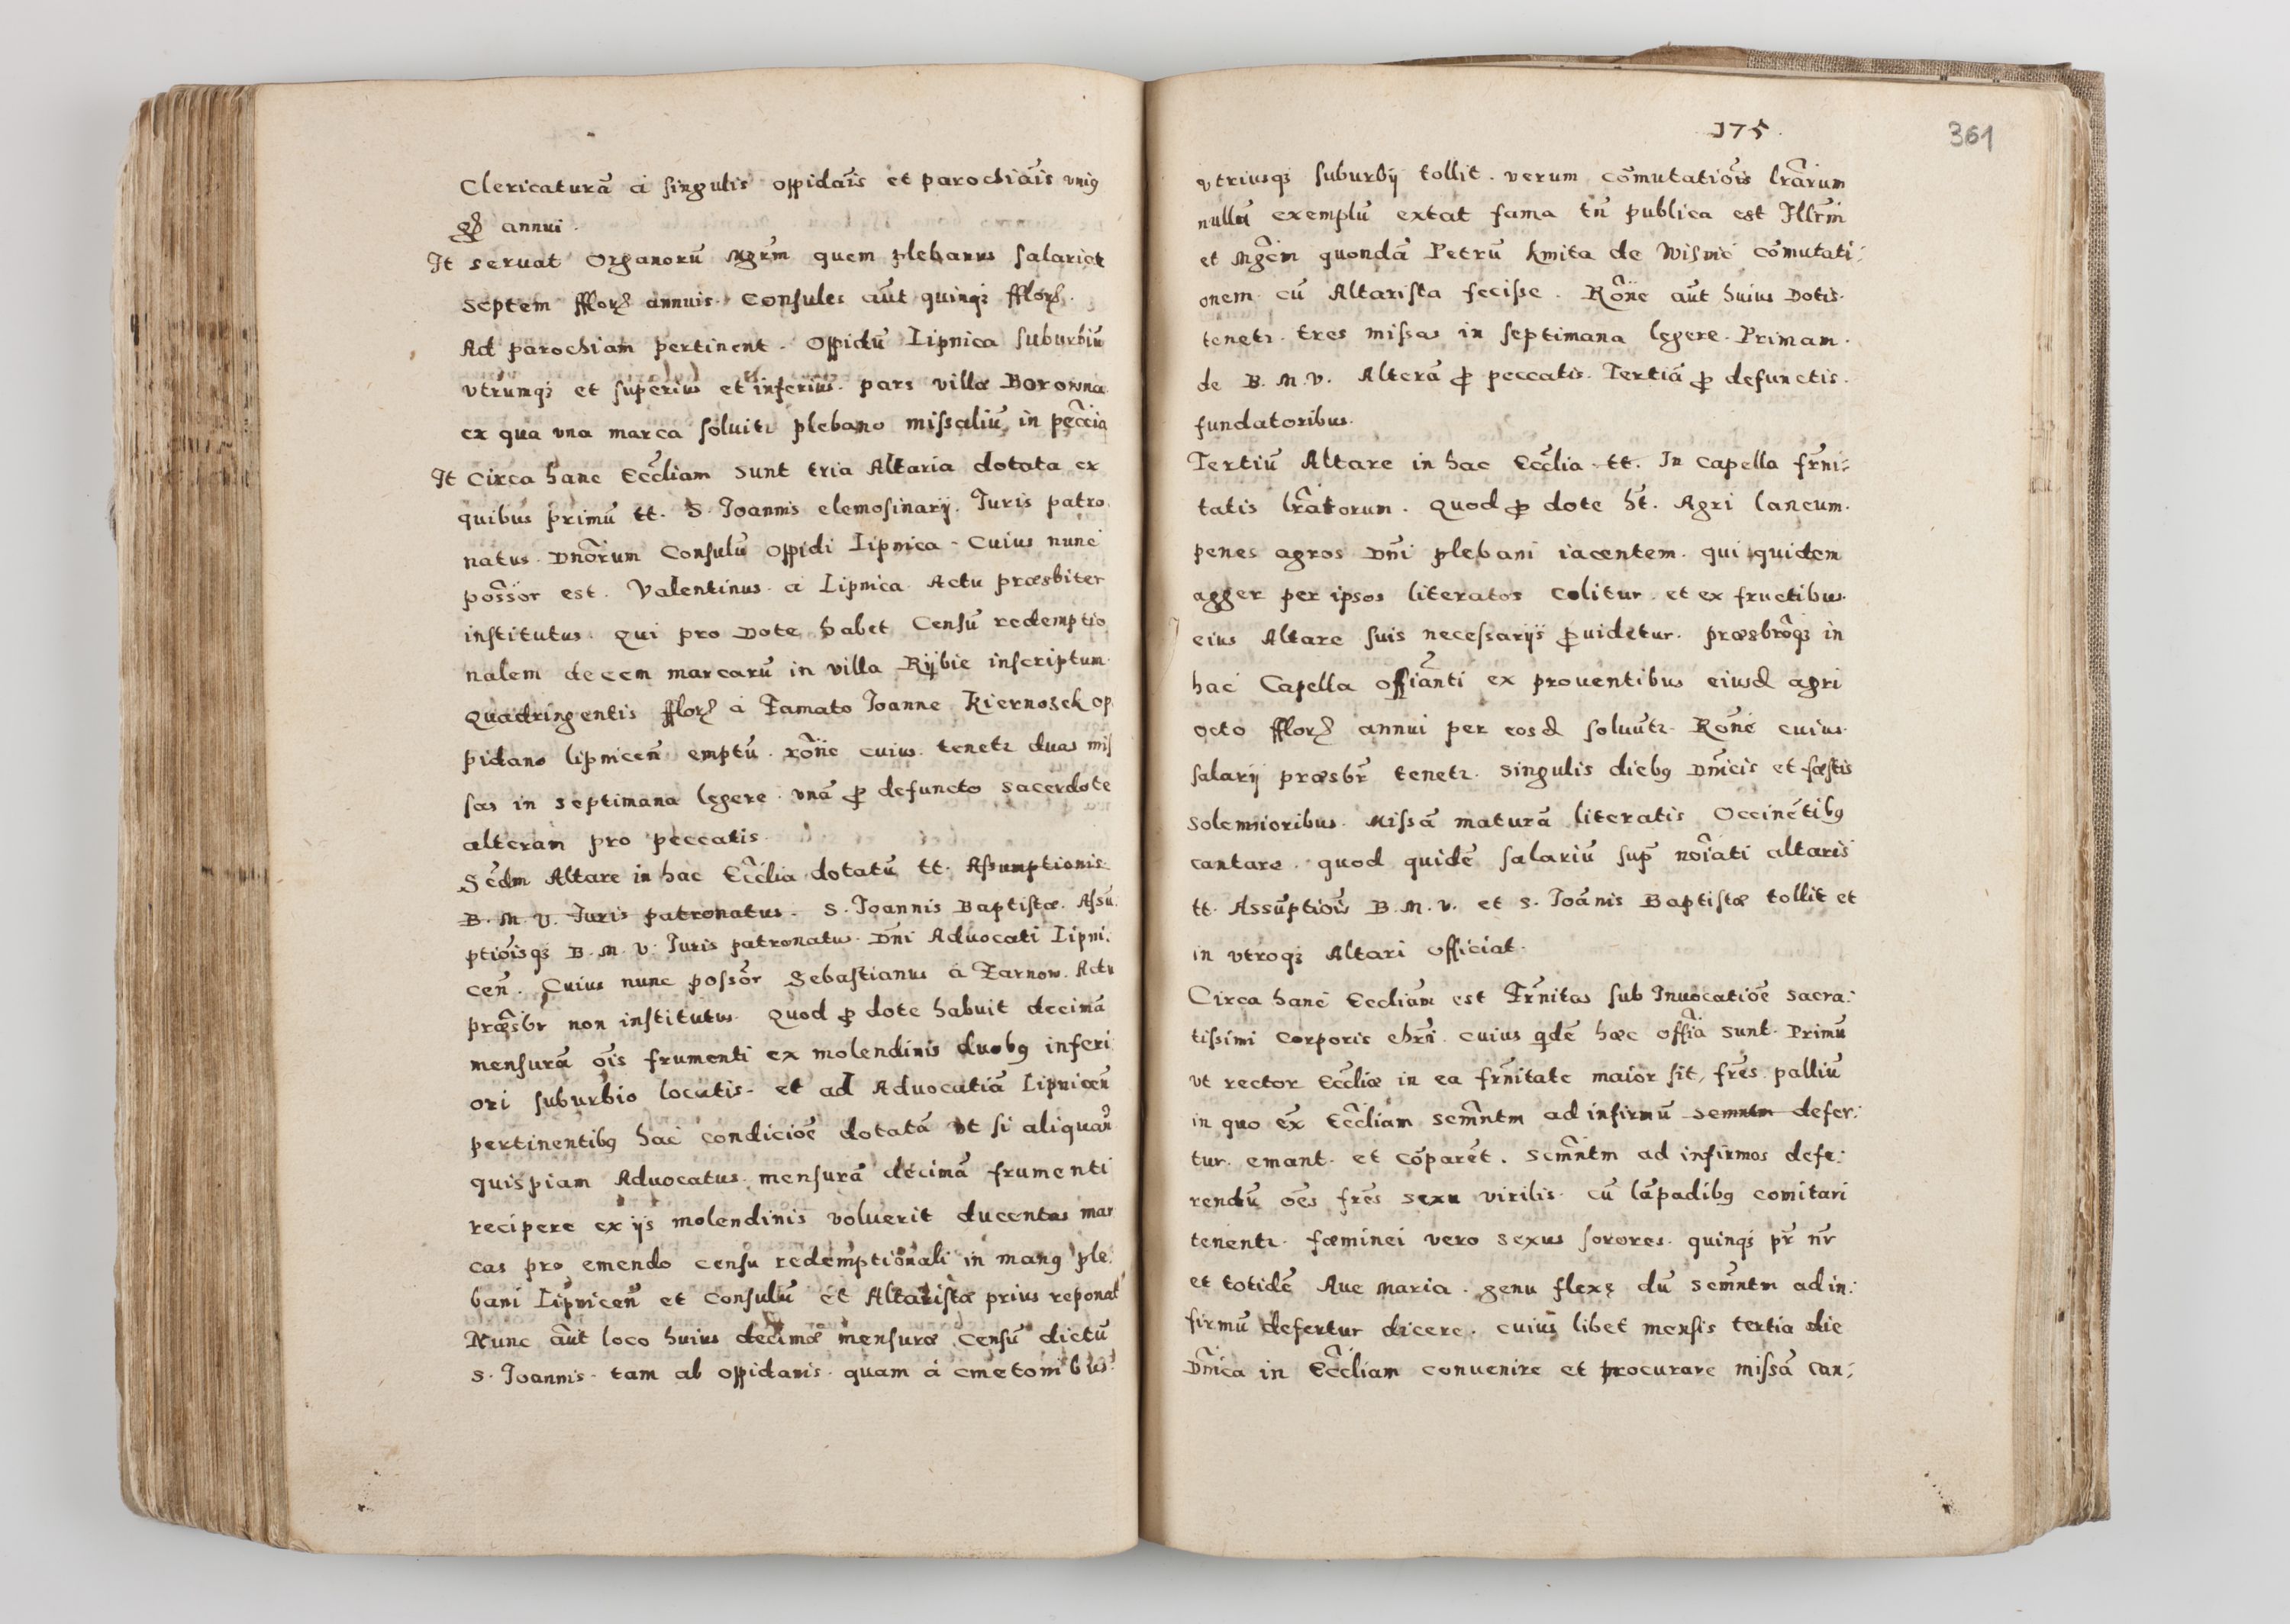 Clericaturā à singulis oppidāis et parochiāis vnig
gſ annui.
It seruat Organorū Mgrm quem plebanus salariat
septem fflorſ annuis. Consules aūt quinqʒ fflorſ.
Ad parochiam pertinent. Oppidū Lipnica suburbiū
vtrumqʒ et superius et inferius. pars villæ Borowna
ex qua vna marca soluitr plebano missaliū in peccia
It Circa hanc Eccliam sunt tria Altaria dotata ex
quibus primū tt. S. Joannis elemosinarij. Juris patro
natus. Dnorum Consulū oppidi Lipnica. Cuius nunc
possor est. Valentinus. à Lipnica Actu præsbiter
institutus. Qui pro Dote habet Censū redemptio
nalem decem marcarū in villa Rijbie inscriptum.
Quadringentis fflorſ à Famato Joanne Kiernoszek op
pidano lipnicen emptū. rone cuius. tenetr duas mis
sas in septimana legere. vnā p defuncto sacerdote
alteram pro peccatis.
Scdm Altare in hac Ecclia dotatū tt. Assumptionis
B. M. V. Juris patronatus. S. Joannis Baptistæ. Assū
ptiōisqʒ B. M. V. Juris patronatus. Dni Aduocati Lipni:
cen. Cuius nunc possor Sebastianus à Tarnow. Actu
præsbr non institutus. Quod p dote habuit decimā
mensurā ois frumenti ex molendinis duobg inferi
ori suburbio locatis. et ad Aduocatiā Lipnicen
pertinentibg hac condicioe dotatā vt si aliquan
quispiam Aduocatus. mensurā decimā frumenti
recipere ex ijs molendinis voluerit ducentas mar
cas pro emendo censu redemptionali in mang ple:
bani Lipnicen et Consulū et Altaristæ prius reponat
Nunc aūt loco huius decimæ mensuræ Censū dictū
S. Joannis. tam ab oppidanis. quam à cmetonibus.
175.
361
vtriusqʒ suburbij tollit. verum cōmutatiōis lrarum
nullū exemplū extat fama tn publica est Jllrm
et Mgcm quondā Petrū Kmita de Wisnic cōmutati:
onem cū Altarista fecisse. Rone aūt huius Dotis.
tenetr. tres missas in septimana legere. Primam.
de B. M. V. Alterā p peccatis. Tertiā p defunctis.
fundatoribus.
Tertiū Altare in hac Ecclia tt. In capella frni:
tatis lratorum. Quod p dote ht. Agri laneum.
penes agros Dni plebani iacentem. qui quidem
agger per ipsos literatos colitur. et ex fructibus.
eius Altare suis necessarijs puidetur. præsbroqʒ in
hac Capella offianti ex prouentibus eiusd agri
octo fflorſ annui per eosd soluūtr. Rone cuius.
salarij præsbr tenetr. singulis diebg Dnicis et fæstis
solemnioribus. Missā maturā literatis Occinētibg
cantare. quod quidē salariū sup noiati altaris
tt. Assūptiōis B. M. V. et S. Joānis Baptistæ tollit et
in vtroqʒ Altari officiat.
Circa hanc Eccliam est Frnitas sub Inuocatiōe sacra:
tissimi Corporis chri. cuius qdē hæc offia sunt. Primū
vt rector Eccliæ in ea frnitate maior sit, fres palliū
in quo ex Eccliam semntm ad infirmū semntm defer:
tur. emant. et cōparēt. Semntm ad infirmos defe:
rendū oēs fres sexu virilis. cū lāpadibg comitari
tenentr. fæminei vero sexus sorores. quinqʒ pr nr
et totidē Aue Maria. genu flexę dū semntm ad in:
firmū defertur dicere. cuius libet mensis tertia die
Dnica in Eccliam conuenire et procurare missā can: